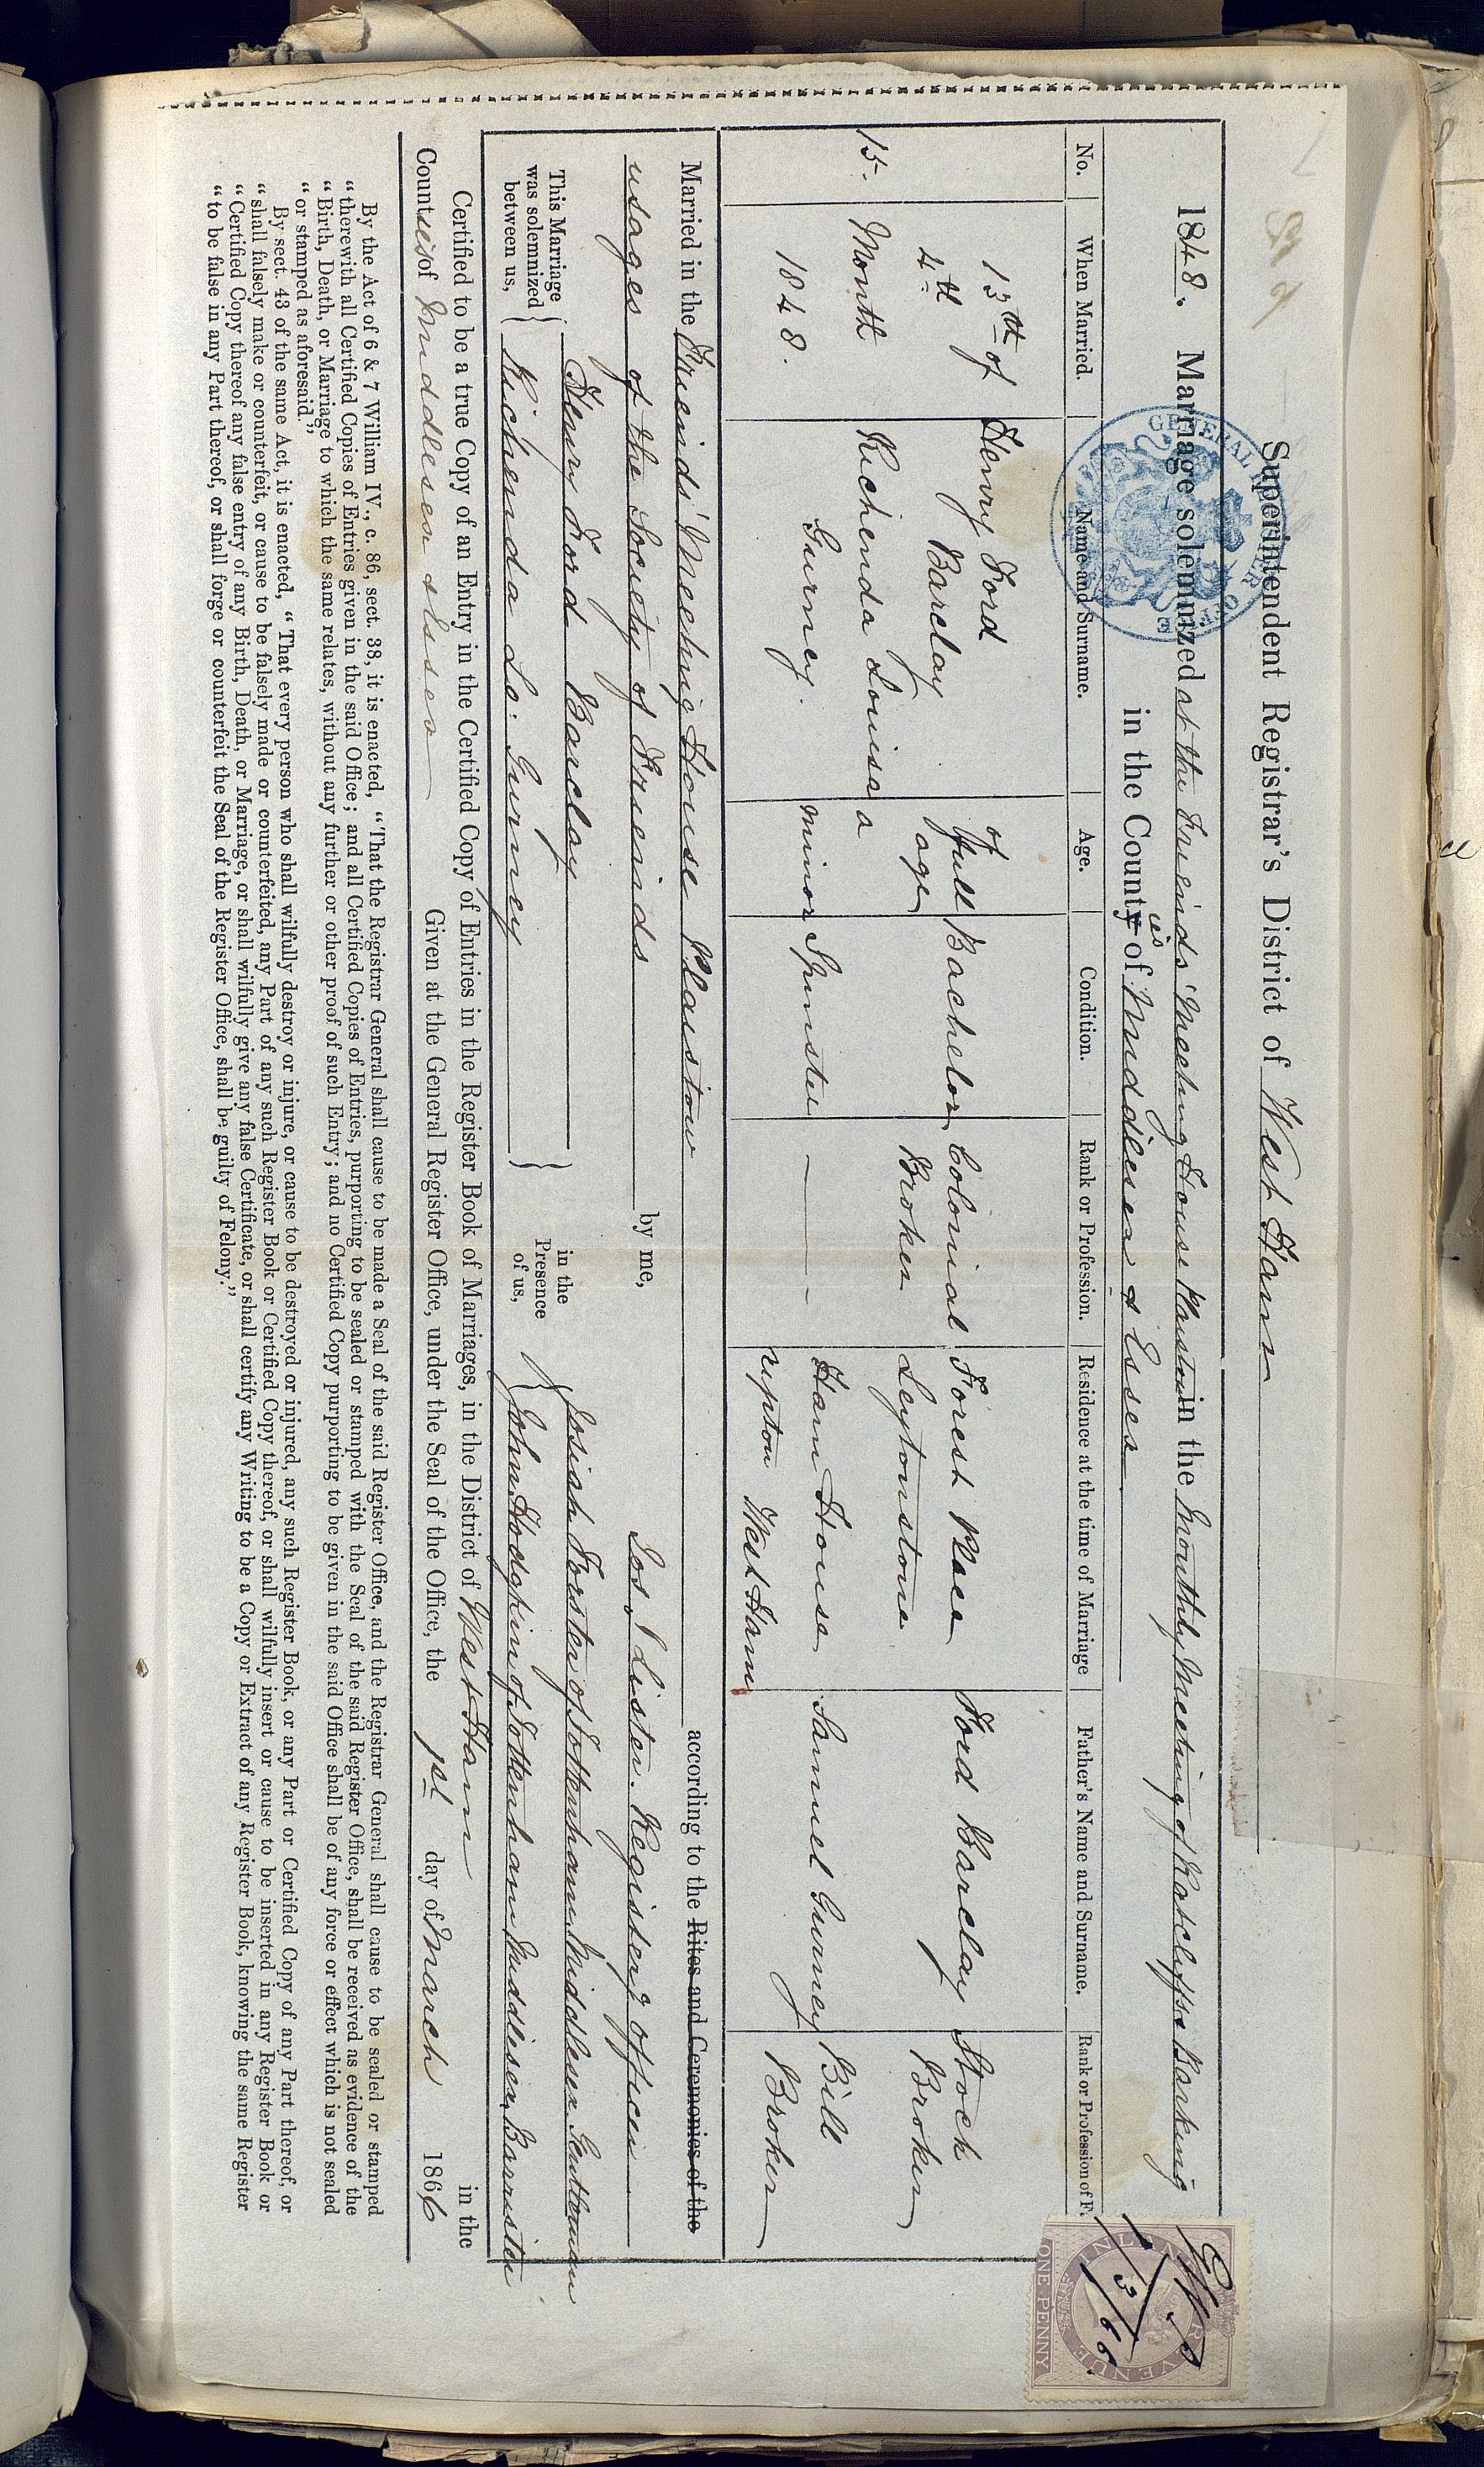 Superintendent Registrar's District of West Ham
1848. Marriage solemnized at the Friends' Meeting House Plaistow in the Monthly Meeting of Ratcliffe & Barking
in the County ies of Middlesex & Essex
No. When Married. Name and Surname. Age. Condition. Rank or Profession. Residence at the time of Marriage Father's Name and Surname. Rank or Profession of F.
15. 13th of 4th Month 1848. Henry Ford Barclay of full age Bachelor Colonial Broker Forest Place Leytonstone Ford Barclay Stock Broker
Richenda Louisa Gurney. a minor Spinster — Ham House Upton West Ham Samuel Gurney Bill Broker
Married in the Friends' Meeting House Plaistow according to the Rites and Ceremonies of the
usages of the Society of Friends by me, Jos. Lister. Registerg officer
This Marriage was solemnized between us, Henry Ford Barclay
Richenda Lo: Gurney
in the Presence of us, Josiah Forster of Tottenham Middlesex Gentleman
John Hodgkin of Tottenham Middlesex, Barrister
Certified to be a true Copy of an Entry in the Certified Copy of Entries in the Register Book of Marriages, in the District of West Ham in the
Counties of Middlesex & Essex Given at the General Register Office, under the Seal of the Office, the 1st day of March 1866
By the Act of 6 & 7 William IV., c. 86, sect. 38, it is enacted, "That the Registrar General shall cause to be made a Seal of the said Register Office, and the Registrar General shall cause to be sealed or stamped
"therewith all Certified Copies of Entries given in the said Office; and all Certified Copies of Entries, purporting to be sealed or stamped with the Seal of the said Register Office, shall be received as evidence of the
"Birth, Death, or Marriage to which the same relates, without any further or other proof of such Entry; and no Certified Copy purporting to be given in the said Office shall be of any force or effect which is not sealed
"or stamped as aforesaid."
By sect. 43 of the same Act, it is enacted, "That every person who shall wilfully destroy or injure, or cause to be destroyed or injured, any such Register Book, or any Part or Certified Copy of any Part thereof, or
"shall falsely make or counterfeit, or cause to be falsely made or counterfeited, any Part of any such Register Book or Certified Copy thereof, or shall wilfully insert or cause to be inserted in any Register Book or
"Certified Copy thereof any false entry of any Birth, Death, or Marriage, or shall wilfully give any false Certificate, or shall certify any Writing to be a Copy or Extract of any Register Book, knowing the same Register
"to be false in any Part thereof, or shall forge or counterfeit the Seal of the Register Office, shall be guilty of Felony."
GENERAL REGISTER OFFICE
INLAND REVENUE
ONE PENNY
1/3/66